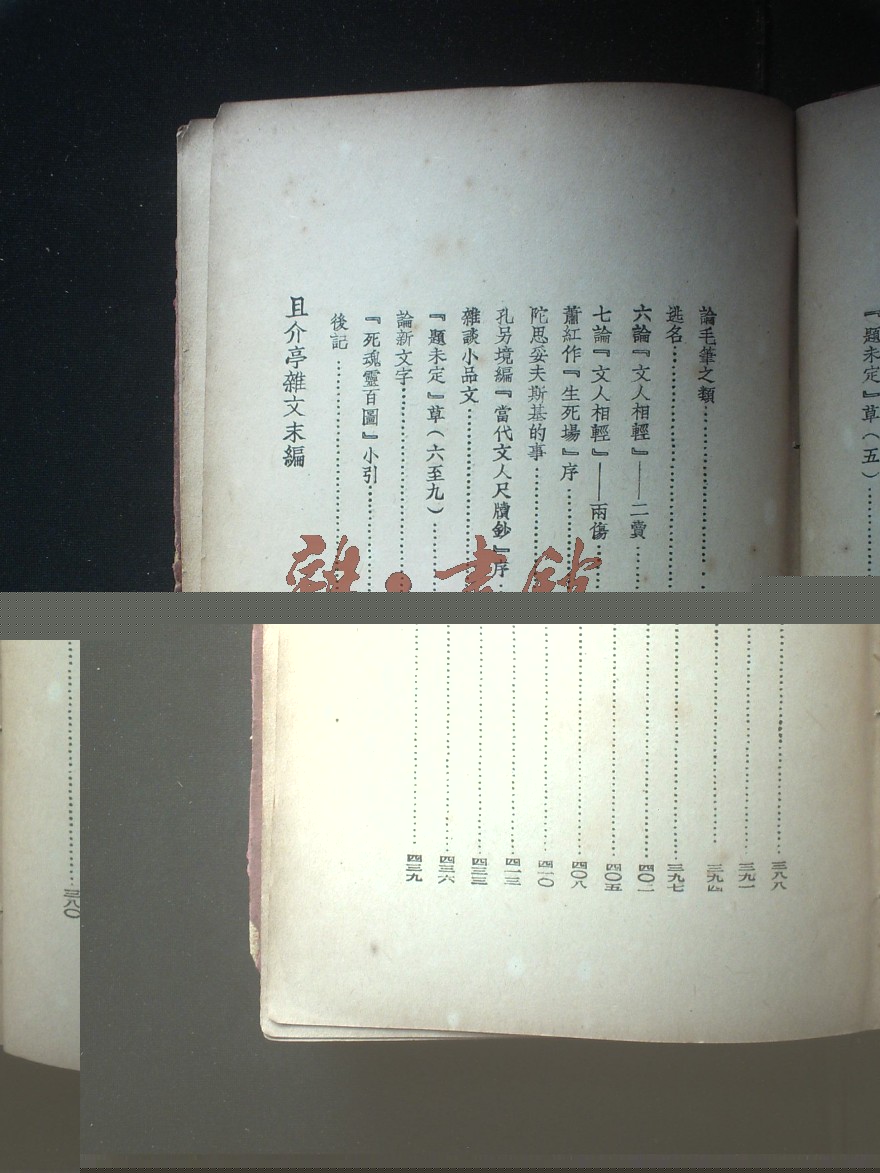 『題未定』草(五)……三八〇
論毛筆之類……三八八
逃名……三九一
六論『文人相輕』——二賣……三九四
七論『文人相輕』——兩傷……三九七
蕭紅作『生死場』序……四〇二
陀思妥夫斯基的事……四〇五
孔另境編『當代文人尺牘鈔』序……四〇八
雜談小品文……四一〇
『題未定』草(六至九)……四一三
論新文字……四三三
『死魂靈百圖』小引……四三六
後記……四三九
且介亭雜文末編